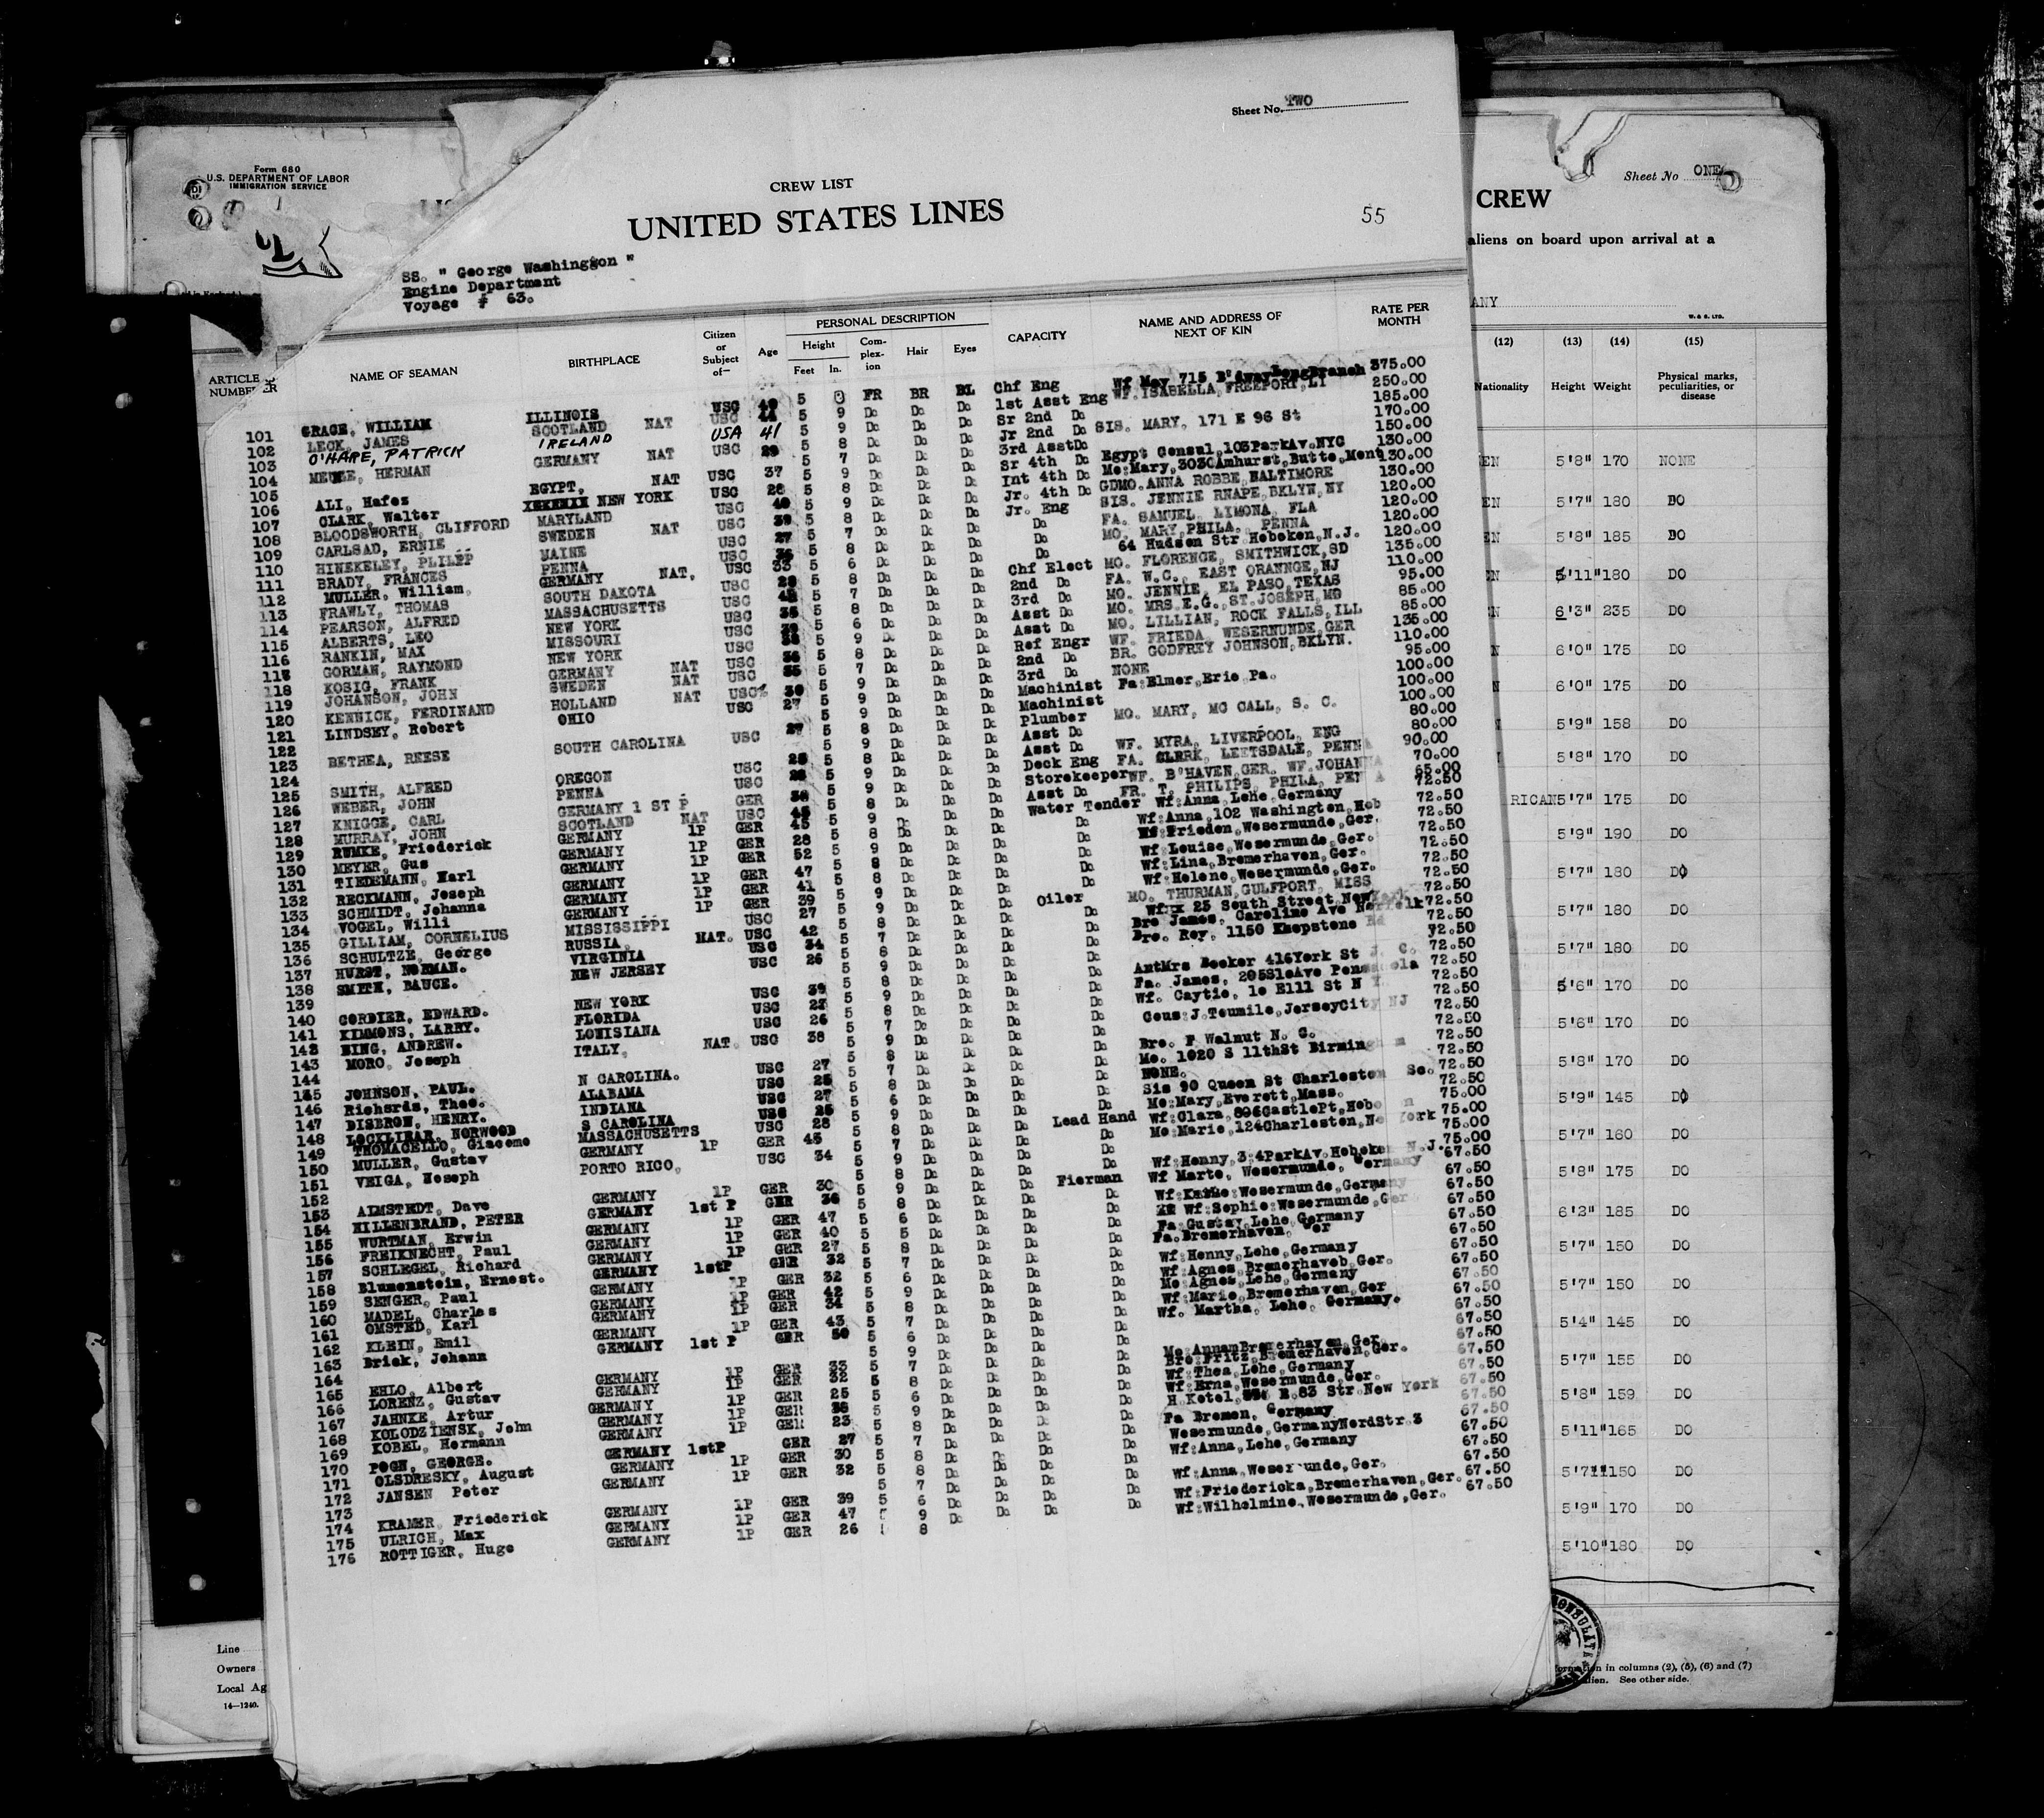 Form 680
U.S. DEPARTMENT OF LABOR
IMMIGRATION SERVICE
Sheet No. TWO
CREW LIST
UNITED STATES LINES
55
SS. " George Washinggon "
Engine Department
Voyage # 63.
ARTICLE NUMBER NAME OF SEAMAN BIRTHPLACE Citizen or Subject of— Age PERSONAL DESCRIPTION Height Feet In. Complexion Hair Eyes CAPACITY NAME AND ADDRESS OF NEXT OF KIN RATE PER MONTH
101 GRACE, WILLIAM ILLINOIS USC 49 5 FR BR BL Chf Eng Wf May 715 B'dway Long Branch 375.00
102 LECK, JAMES SCOTLAND NAT USC 44 5 9 Do Do Do 1st Asst Eng WF. ISABELLA, FREEPORT, LI 250.00
103 O'HARE, PATRICK IRELAND USA 41 5 9 Do Do Do Sr 2nd Do 185.00
104 MEULE, HERMAN GERMANY NAT USC 29 5 8 Do Do Do Jr 2nd Do SIS. MARY, 171 E 96 St 170.00
105 5 7 Do Do Do 3rd Asst Do 150.00
106 ALI, Hafez EGYPT, NAT USC 37 5 9 Do Do Do Sr 4th Do Egypt Consul, 103ParkAv, NYC 130.00
107 CLARK, Walter NEW YORK USC 26 5 8 Do Do Do Int 4th Do Mo:Mary, 3030Amhurst, Butte, Mont 130.00
108 BLOODSWORTH, CLIFFORD MARYLAND USC 40 5 9 Do Do Do Jr. 4th Do GDMO. ANNA ROBBE, BALTIMORE 130.00
109 CARLSAD, ERNIE SWEDEN NAT USC 39 5 8 Do Do Do Jr. Eng SIS. JENNIE RNAPE, BKLYN, NY 120.00
110 HINEKELEY, PLILPP MAINE USC 27 5 7 Do Do Do Do FA. SAMUEL, LIMONA, FLA 120.00
111 BRADY, FRANCES PENNA USC 36 5 8 Do Do Do Do MO. MARY, PHILA. PENNA 120.00
112 MULLER, William, GERMANY NAT, USC 33 5 6 Do Do Do Do 64 Hudson Str Hoboken, N.J. 120.00
113 FRAWLY, THOMAS SOUTH DAKOTA USC 29 5 8 Do Do Do Chf Elect MO. FLORENCE, SMITHWICK, SD 135.00
114 PEARSON, ALFRED MASSACHUSETTS USC 42 5 7 Do Do Do 2nd Do FA. W.C., EAST ORANNGE, NJ 110.00
115 ALBERTS, LEO NEW YORK USC 35 5 8 Do Do Do 3rd Do MO. JENNIE, EL PASO, TEXAS 95.00
116 RANKIN, MAX MISSOURI USC 5 6 Do Do Do Asst Do MO. MRS E.G., ST. JOSEPH, MO 85.00
118 GORMAN, RAYMOND NEW YORK USC 5 9 Do Do Do Asst Do MO. LILLIAN, ROCK FALLS, ILL 85.00
118 KOSIG, FRANK GERMANY NAT USC 36 5 8 Do Do Do Ref Engr WF. FRIEDA, WESERNUNDE, GER 135.00
119 JOHANSON, JOHN SWEDEN NAT USC 35 5 7 Do Do Do 2nd Do BR. GODFREY JOHNSON, BKLYN. 110.00
120 KENNICK, FERDINAND HOLLAND NAT USC 30 5 9 Do Do Do 3rd Do NONE 95.00
121 LINDSEY, Robert OHIO USC 27 5 9 Do Do Do Machinist Fa:Elmer, Erie, Pa. 100.00
122 5 9 Do Do Do Machinist 100.00
123 BETHEA, REESE SOUTH CAROLINA USC 27 5 8 Do Do Do Plumber MO. MARY, MC CALL, S. C. 100.00
124 5 9 Do Do Do Asst Do 80.00
125 SMITH, ALFRED OREGON USC 25 5 8 Do Do Do Asst Do WF. MYRA, LIVERPOOL, ENG 80.00
126 WEBER, JOHN PENNA USC 5 9 Do Do Do Deck Eng FA. CLERK, LEETSDALE, PENN 90.00
127 KNIGGE, CARL GERMANY 1 ST P GER 38 5 9 Do Do Do Storekeeper WF. B'HAVEN, GER. WF. JOHANNA 70.00
128 MURRAY, JOHN SCOTLAND NAT USC 5 8 Do Do Do Asst Do FR. T. PHILIPS, PHILA, PEN A 65.00
129 RUMKE, Friederick GERMANY 1P GER 45 5 9 Do Do Water Tender Wf:Anna, Lehe, Germany 72.50
130 MEYER, Gus GERMANY 1P GER 28 5 8 Do Do Do Do Wf:Anna, 102 Washington, Hob 72.50
131 TIEDEMANN, Karl GERMANY 1P GER 52 5 9 Do Do Do Do Wf:Frieden, Wesermunde, Ger. 72.50
132 RECKMANN, Joseph GERMANY 1P GER 47 5 8 Do Do Do Do Wf:Louise, Wesermunde, Ger. 72.50
133 SCHMIDT, Johanna GERMANY 1P GER 41 5 8 Do Do Do Do Wf:Lina, Bremerhaven, Ger. 72.50
134 VOGEL, Willi GERMANY 1P GER 39 5 9 Do Do Do Do Wf:Helene, Wesermunde, Ger. 72.50
135 GILLIAM, CORNELIUS MISSISSIPPI USC 27 5 9 Do Do Do Oiler MO. THURMAN, GULFPORT, MISS 72.50
136 SCHULTZE, George RUSSIA, NAT. USC 42 5 8 Do Do Do Do 25 South Street New York 72.50
137 HURST, NORMAN. VIRGINIA USC 34 5 7 Do Do Do Do Bro James, Caroline Ave Norfolk 72.50
138 SMITH, BAUCE. NEW JERSEY USC 26 5 8 Do Do Do Do Bro. Roy, 1150 Khepstone Rd 72.50
139 5 9 Do Do Do Do 72.50
140 CORDIER, EDWARD. NEW YORK USC 39 5 8 Do Do Do Do AntMrs Becker 416York St J. C. 72.50
141 KIMMONS, LARRY. FLORIDA USC 5 9 Do Do Do Do Fa. James, 205SloAve Pensacola 72.50
142 KING, ANDREW. LOUISIANA USC 26 5 8 Do Do Do Do Wf. Caytie, 10 Elll St N Y. 72.50
143 MORO, Joseph ITALY, NAT. USC 38 5 7 Do Do Do Do Cous:J. Toumile, JerseyCity NJ 72.50
144 5 9 Do Do Do Do 72.50
145 JOHNSON, PAUL. N CAROLINA. USC 27 5 8 Do Do Do Do Bro. F Walnut N. C. 72.50
146 Richards, Theo. ALABAMA USC 25 5 7 Do Do Do Do Mo. 1020 S 11thSt Birmingham 72.50
147 DISBRON, HENRY. INDIANA USC 27 5 8 Do Do Do Do NONE. 72.50
148 LOCKLIBAR, NORWOOD S CAROLINA USC 25 5 6 Do Do Do Do Sis 90 Queen St Charleston So. 72.50
149 THOMACELLO, Giacomo MASSACHUSETTS USC 28 5 9 Do Do Do Do Mo:Mary, Everett, Mass. 72.50
150 MULLER, Gustav GERMANY 1P GER 45 5 8 Do Do Do Lead Hand Wf:Clara, 806CastlePt, Hobo n 75.00
151 VEIGA, Hoseph PORTO RICO, USC 34 5 7 Do Do Do Do Mo:Marie, 124Charleston, Ne York 75.00
152 5 9 Do Do Do Do 75.00
153 ALMSTEDT, Dave GERMANY 1P GER 30 5 8 Do Do Do Do Wf:Henny, 3:4ParkAv. Hoboken N.J. 75.00
154 HILLENBRAND, PETER GERMANY 1st P GER 36 5 9 Do Do Do Fierman Wf Marte, Wesermunde, Germany 67.50
155 WURTMAN, Erwin GERMANY 1P GER 47 5 8 Do Do Do Do Wf:Kathe:Wesermunde, Germany 67.50
156 FREIKNECHT, Paul GERMANY 1P GER 40 5 6 Do Do Do Do Wf:Sophie:Wesermunde, Ger 67.50
157 SCHLEGEL, Richard GERMANY 1P GER 27 5 5 Do Do Do Do Fa:Gustav, Lehe, Germany 67.50
158 Blumenstein, Ernest. GERMANY 1stP GER 32 5 8 Do Do Do Do Fa. Bremerhaven, Ger 67.50
159 SENGER, Paul GERMANY 1P GER 32 5 7 Do Do Do Do Wf:Henny, Lehe, Germany 67.50
160 MADEL, Charles GERMANY 1P GER 42 5 6 Do Do Do Do Wf:Agnes, Bremerhaveb, Ger. 67.50
161 OMSTED, Karl GERMANY 1P GER 34 5 9 Do Do Do Do Mo:Agnes, Lehe, Germany 67.50
162 KLEIN, Emil GERMANY 1P GER 43 5 8 Do Do Do Do Wf:Marie, Bremerhaven, Ger 67.50
163 Brick, Johann GERMANY 1st P GER 50 5 7 Do Do Do Do Wf. Martha, Lehe, Germany. 67.50
164 5 6 Do Do Do Do 67.50
165 EHLO, Albert GERMANY 1P GER 33 5 9 Do Do Do Do Mo:AnnamBremerhaven, Ger. 67.50
166 LORENZ, Gustav GERMANY 1P GER 32 5 7 Do Do Do Do Bro:Fritz, Bremerhaven, Ger. 67.50
167 JAHNKE, Artur GERMANY 1P GER 25 5 8 Do Do Do Do Wf:Thea, Lehe, Germany 67.50
168 KOLODZIENSK, John GERMANY 1P GER 36 5 6 Do Do Do Do Wf:Erna, Wesermunde, Ger. 67.50
169 KOBEL, Hermann GERMANY 1P GER 23 5 9 Do Do Do Do H. Kotel, E. 83 Str. New York 67.50
170 POGN, GEORGE. GERMANY 1stP GER 27 5 8 Do Do Do Do Fa Bremen, Germany 67.50
171 OLSDRESKY, August GERMANY 1P GER 30 5 7 Do Do Do Do Wesermunde, GermanyNordStr. 3 67.50
172 JANSEN Peter GERMANY 1P GER 32 5 8 Do Do Do Do Wf:Anna, Lehe, Germany 67.50
173 5 8 Do Do Do Do 67.50
174 KRAMER, Friederick GERMANY 1P GER 39 5 7 Do Do Do Do Wf:Anna, Weser unde, Ger. 67.50
175 ULRICH, Max GERMANY 1P GER 47 5 6 Do Do Do Do Wf:Friedericka, Bremerhaven, Ger. 67.50
176 ROTTIGER, Hugo GERMANY 1P GER 26 9 Do Do Do Do Wf:Wilhelmine, Wesermunde, Ger. 67.50
8
Sheet No ONE
CREW
aliens on board upon arrival at a
ANY
W. & S. LTD.
(12) (13) (14) (15)
Nationality Height Weight Physical marks, peculiarities, or disease
EN 5'8" 170 NONE
EN 5'7" 180 DO
EN 5'8" 185 DO
EN 5'11" 180 DO
N 6'3" 235 DO
N 6'0" 175 DO
N 6'0" 175 DO
5'9" 158 DO
5'8" 170 DO
RICAN 5'7" 175 DO
5'9" 190 DO
5'7" 180 DO
5'7" 180 DO
5'7" 180 DO
5'6" 170 DO
5'6" 170 DO
5'8" 170 DO
5'9" 145 DO
5'7" 160 DO
5'8" 175 DO
6'2" 185 DO
5'7" 150 DO
5'7" 150 DO
5'4" 145 DO
5'7" 155 DO
5'8" 159 DO
5'11" 165 DO
5'7" 150 DO
5'9" 170 DO
5'10" 180 DO
Line
Owners
Local Ag
14—1240.
formation in columns (2), (5), (6) and (7)
alien. See other side.